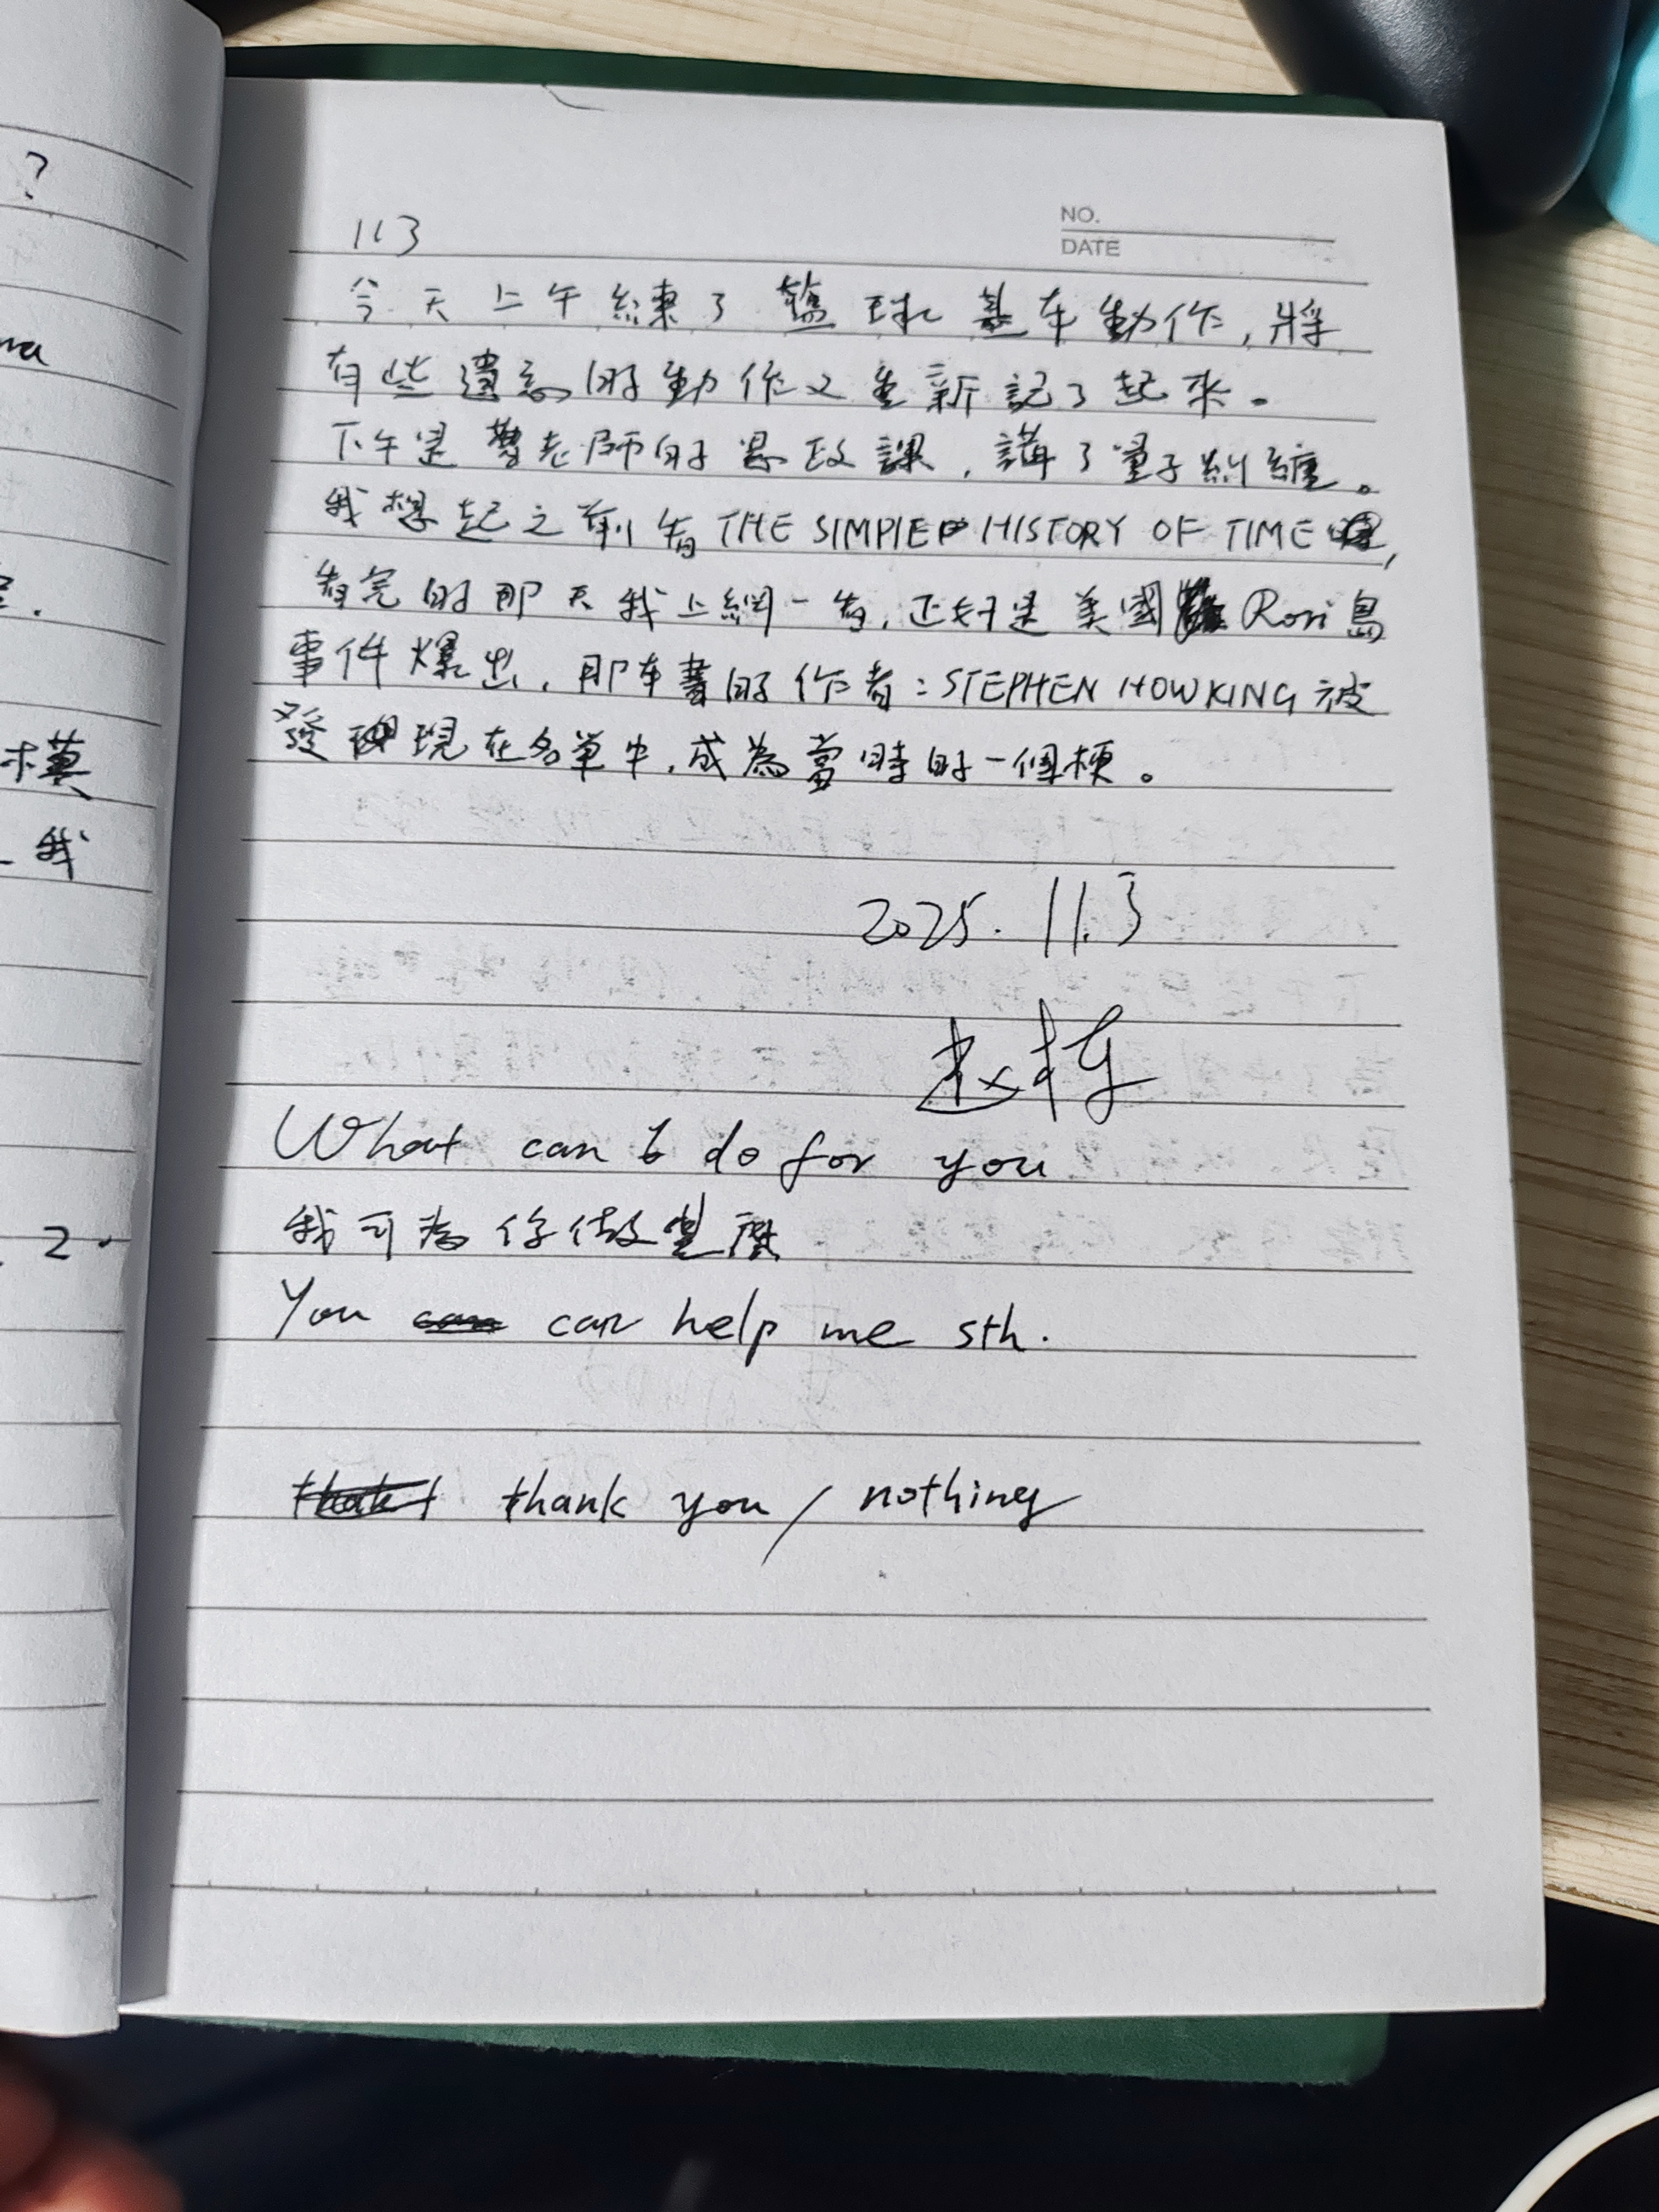 ?
na
横
我
2.
113
NO.
DATE
今天上午練了籃球基本動作,將
有些遺忘的動作又重新記了起來。
下午是 老師的思政課,講了量子糾纏。
我想起之前看THE SIMPLE HISTORY OF TIME,
看完的那天我上網一看,正好是美國 Rori島
事件爆出,那本書的作者:STEPHEN HOWKING被
發現在名單中,成為當時的一個梗。
2025.11.3
赵
What can I do for you
我可為你做 麼
You can help me sth.
thank you/nothing